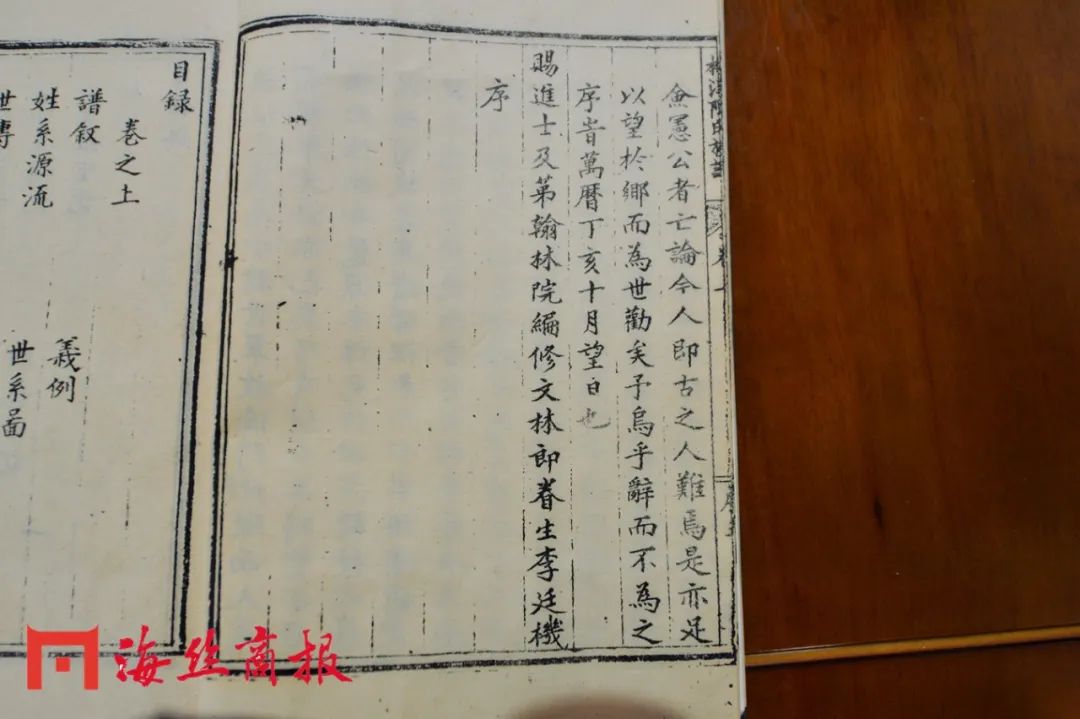 僉憲公者亡論今人即古之人難焉是亦足
以望於鄉而為世勸矣予烏乎辭而不為之
序峕萬曆丁亥十月望日也
賜進士及第翰林院編修文林郎眷生李廷機
序
目録
卷之上
譜敘
姓系源流
義例
世傳
世系啚
海丝商报